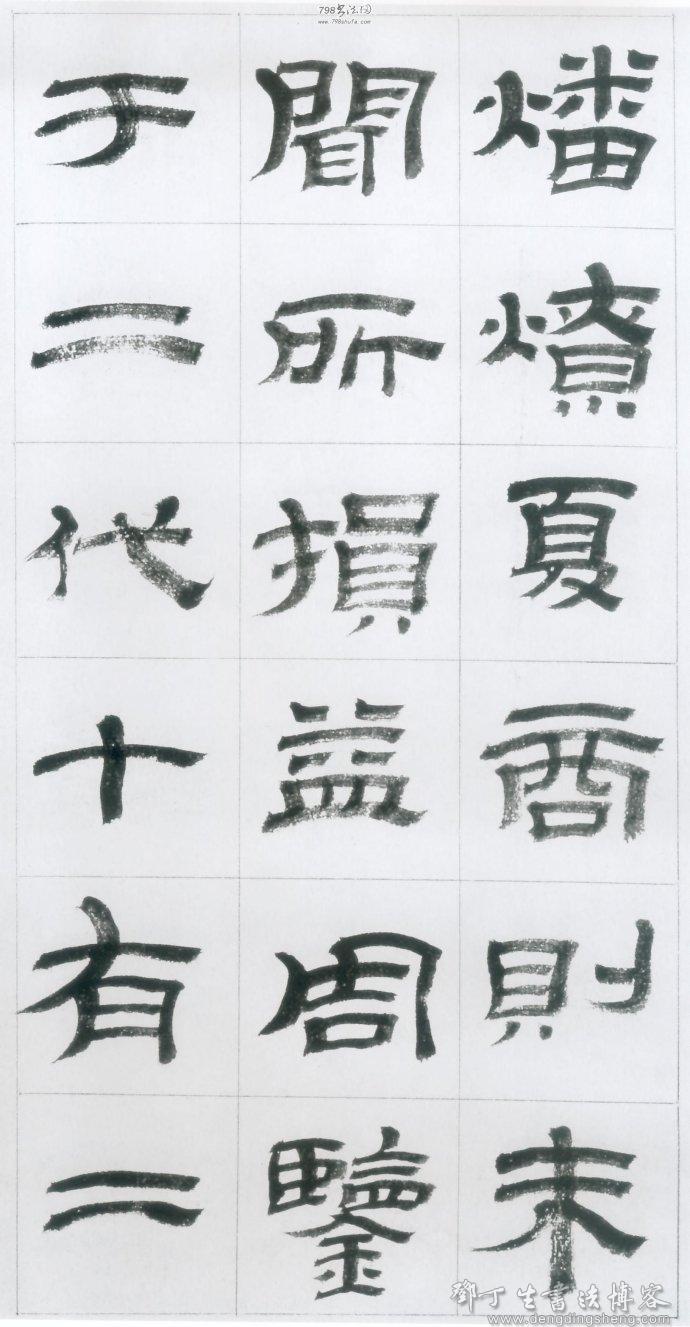 798书法网
www.798shufa.com
燔燎夏商則未
聞所損益周鑒
于二代十有二
鄧丁生書法博客
www.dengdingsheng.com